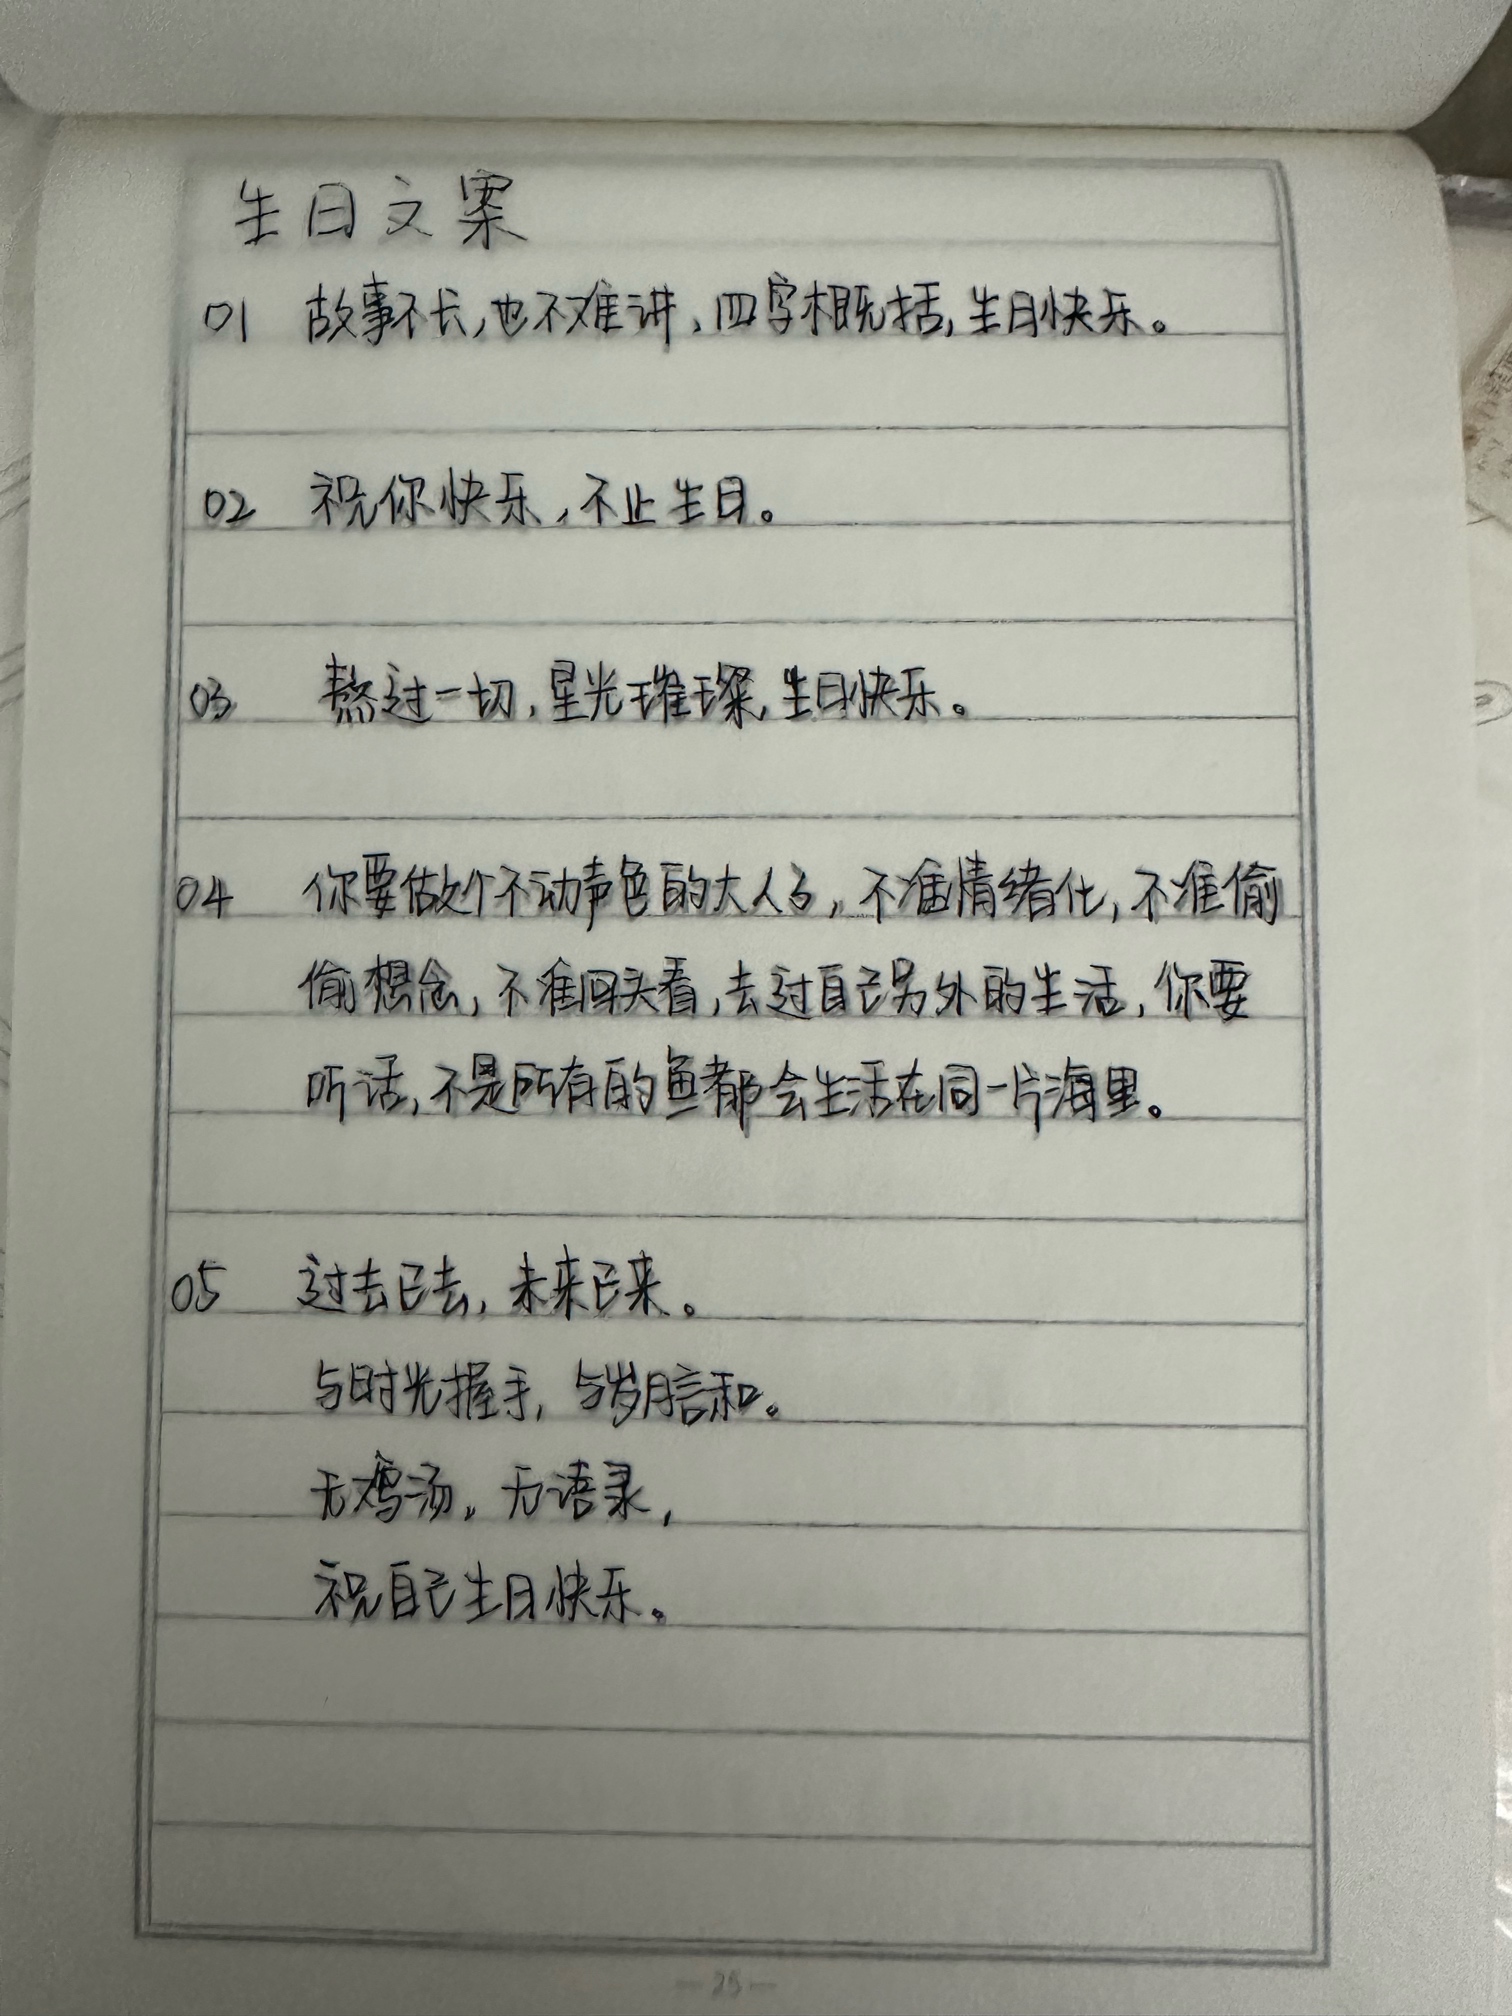 生日文案
01 故事不长,也不难讲,四字概括,生日快乐。
02 祝你快乐,不止生日。
03 熬过一切,星光璀璨,生日快乐。
04 你要做个不动声色的大人了,不准情绪化,不准偷
偷想念,不准回头看,去过自己另外的生活,你要
听话,不是所有的鱼都会生活在同一片海里。
05 过去已去,未来已来。
与时光握手,与岁月言和。
无鸡汤。无语录,
祝自己生日快乐。
— 25 —